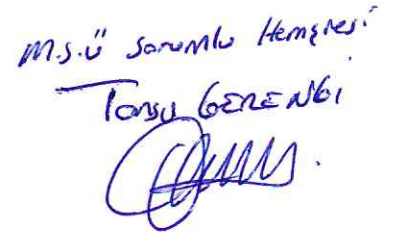 M.S.Ü Sorumlu Hemşiresi
Tansu GERENGİ